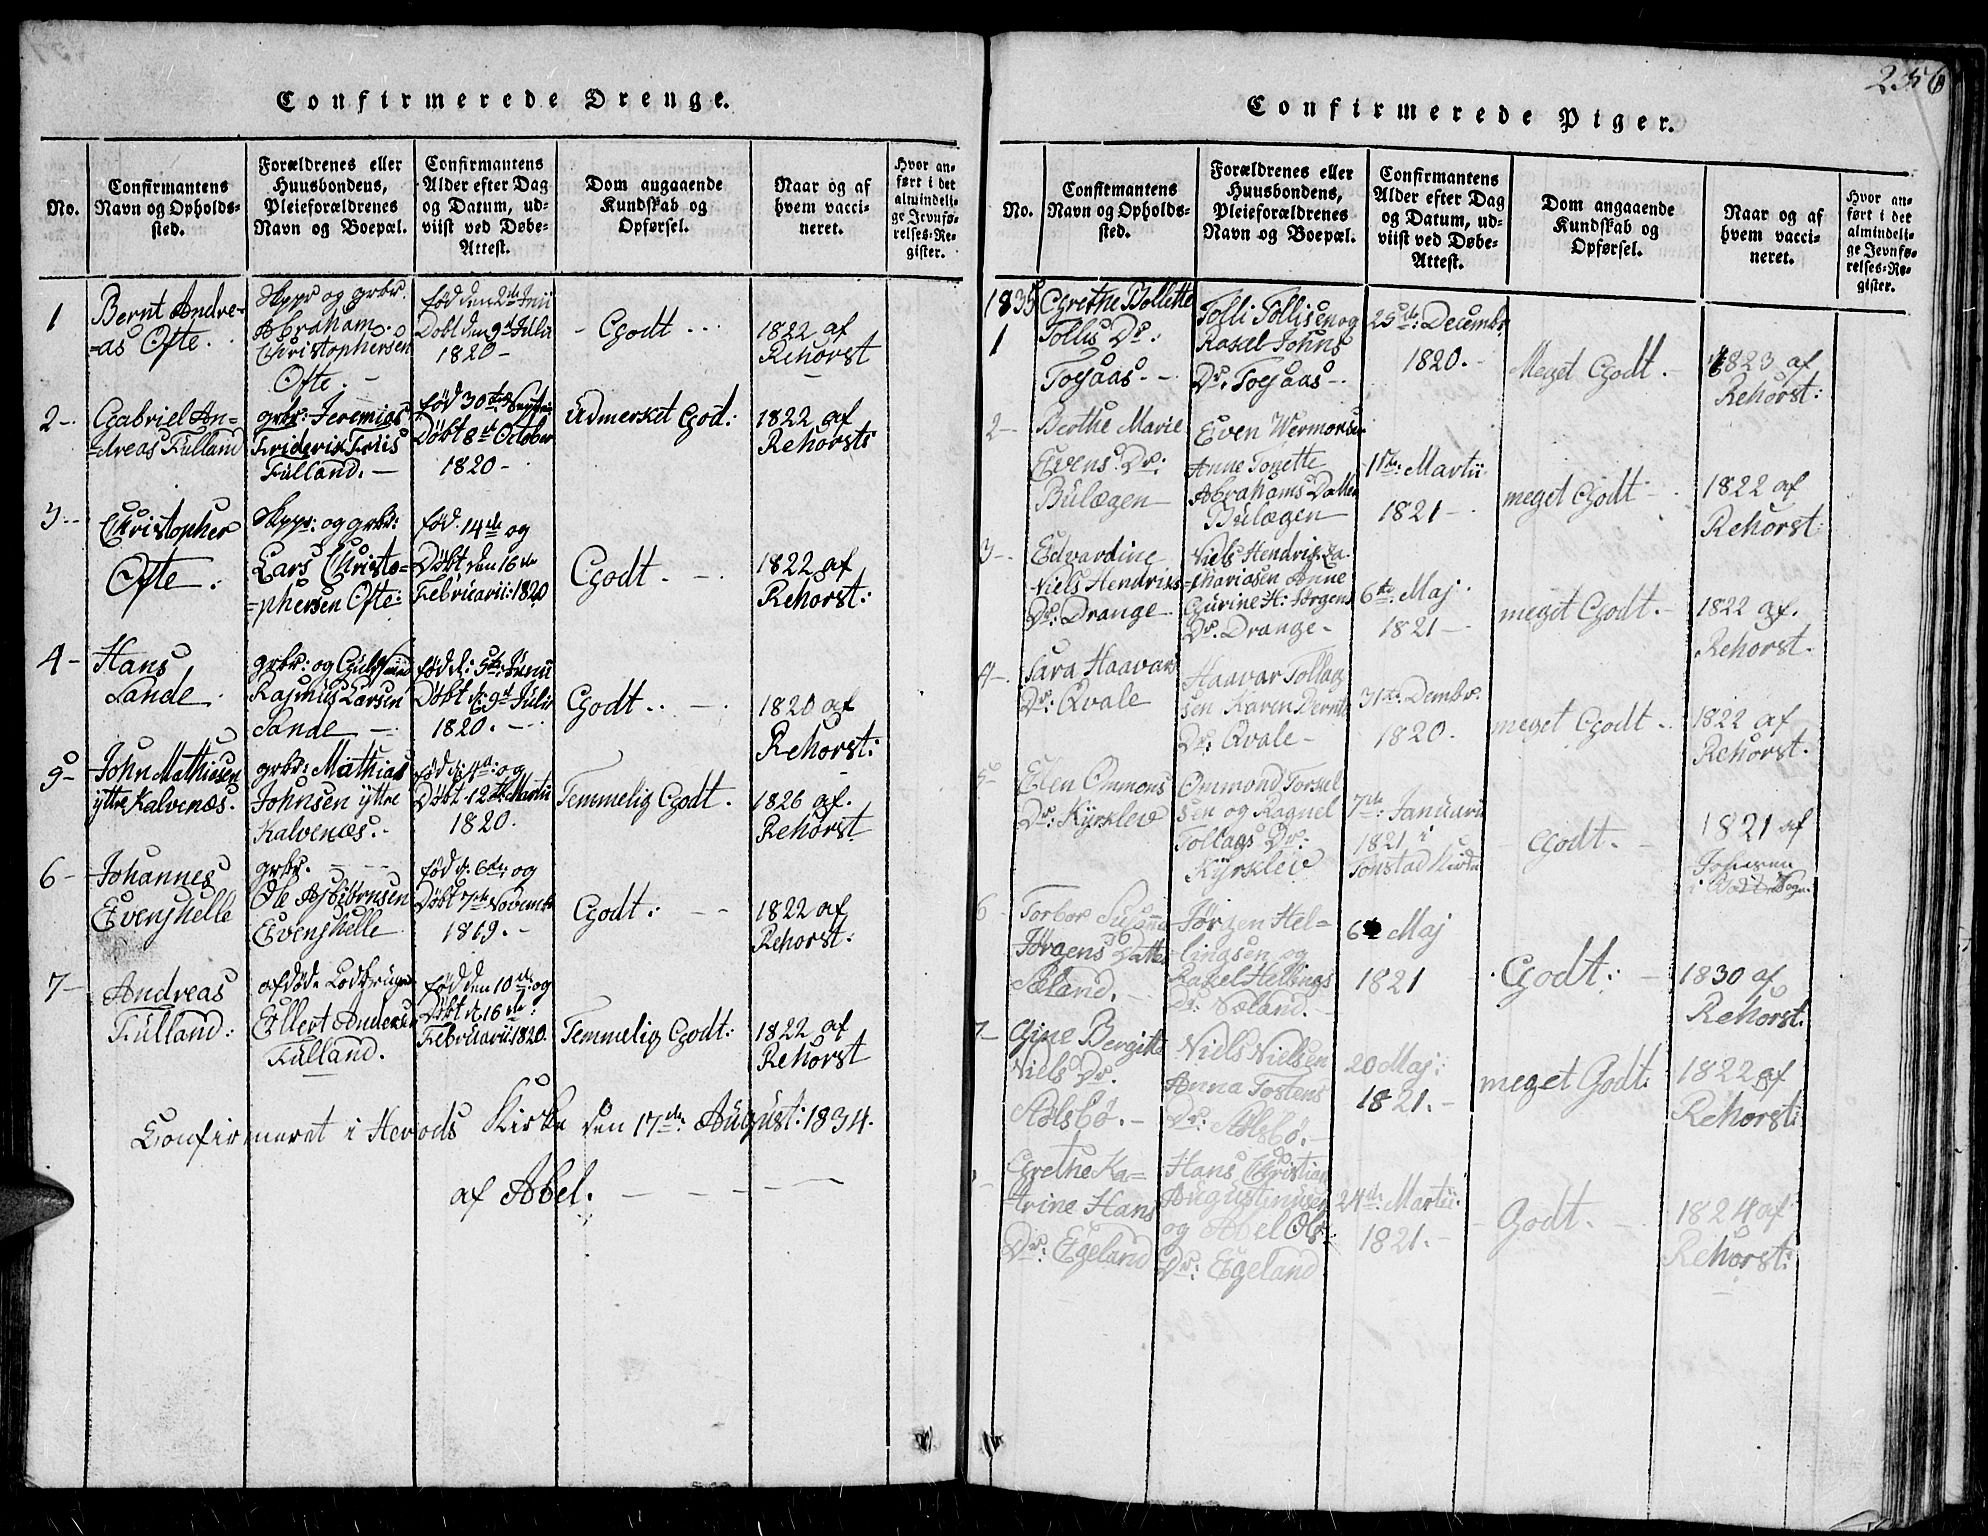 Confirmerede Drenge.
No.
Confirmantens
Navn og Opholds-
sted.
Forældrenes eller
Huusbondens,
Pleieforældrenes
Navn og Boepæl.
Confirmantens
Alder efter Dag
og Datum, ud-
viist ved Døbe-
Attest.
Dom angaaende
Kundskab og
Opførsel.
Naar og af
hvem vacci-
neret.
Hvor an-
ført i det
almindeli-
ge Jevnfø-
relses-Re-
gister.
1
Bernt Andre-
=as Ofte.
Skppr og grbr.
Abraham
Christophersen
Ofte. -
fød den 2de Junii
Døbt den 9de Julii
1820 -
- Godt ...
1822 af
Rehorst
2 -
Gabriel An-
=dreas Fülland
grbr: Jeremias
Friderik Friis
Fülland. -
fød 30te
Døbt 8de October
1820 -
Udmerket God:
1822 af
Rehorst
3 -
Christopher
Ofte .
Skppr: og grbr:
Lars Christo=
=phersen Ofte:
fød. 14de og
Døbt den 16de
Februarii: 1820
Godt. -
1822 af
Rehorst:
4 -
Hans
Sande.
grbr: og
Rasmus Larsen
Sande -
fød d: 5te Junii
Døbt d. 9de Julii
1820. -
Godt.. -
1820 af
Rehorst:
5 -
John Mathiesen
ÿttre Kalvenæs.
grbr: Mathias
Johnsen ÿttre
Kalvenæs. -
fød d: 4de: og
Døbt 12te Martii
1820.
Temmelig Godt.
1826 af.
Rehorst
6 -
Johannes
Evenshelle
grbr. - -
Ole Asbiörnsen
Evenshelle
fød d. 6te: og
Døbt 7de Novembr
1819. -
Godt: - -
1822 af
Rehorst:
7 -
Andreas
Fülland:
afdøde
Ellert Andersen
Fülland.
fød den 10de: og
Døbt d. 16de:
Februarii: 1820.
Temmelig Godt:
1822 af
Rehorst
Confirmeret i Herods Kirke den 17de August: 1834.
af Abel. - - - -
256
Confirmerede Piger.
No.
Confirmantens
Navn og Opholds-
sted.
Forældrenes eller
Huusbondens,
Pleieforældrenes
Navn og Boepæl.
Confirmantens
Alder efter Dag
og Datum, ud-
viist ved Døbe-
Attest.
Dom angaaende
Kundskab og
Opførsel.
Naar og af
hvem vacci-
neret.
Hvor an-
ført i det
almindeli-
ge Jevnfø-
relses-Re-
gister.
1835
1
Grethe Bollette
Tollis Dr:
Toesaas. -
Tolli Tollisen og
Rakel Johns
Dr. Toesaas -
25de: Decembr
1820. -
Meget Godt -
1823 af
Rehorst:
2 -
Berthe Marie
Evens. Dr:
Bülægen
Even Wermonsen
Anne Tonette
Abrahams Datter
Bülægen
1ste: Martii
1821 -
meget Godt -
1822 af
Rehorst:
3 -
Edvardine
Niels Hendriks
Dr: Drange
Niels Hendrik Za-
=chariasen Anne
Gurine H: Jørgens
Dr. Drange -
6te: Maj
1821 -
meget Godt. -
1822 af.
Rehorst.
4 -
Sara Haavars
Dr: Qvale
Haavar Tollags
sen Karen
Dr: Qvale -
31te Dembr.
1820.
meget Godt -
1822 af
Rehorst.
5
Ellen Ommons
Dr: Kÿrklev
Ommond Torkel
sen og Ragnel
Tollags Dr:
Kÿrklev
7de: Januarii
1821 i
Tonstad
- Godt. -
1821 af
6 -
Torbor Susanne
Jørgens Datter
Sæland. -
Jørgen Hel=
lingsen og
Rakel Hellings
Dr: Sæland. -
6te Maj
1821
. Godt: -
1830 af
Rehorst.
7 -
Gine Bergitte
Niels Dr.
Stølsbø. -
Niels Nielsen
Anna Tostens
Dr: Stølsbø. -
20 Maj:
1821. -
meget Godt:
1822 af
Rehorst:
Grethe Ka=
=trine Hans
Dr: Egeland
Hans Christian
Augustinusen
og Abel Ols
Dr: Egeland
24de Martii
1821. -
- Godt. -
1824 af
Rehorst: